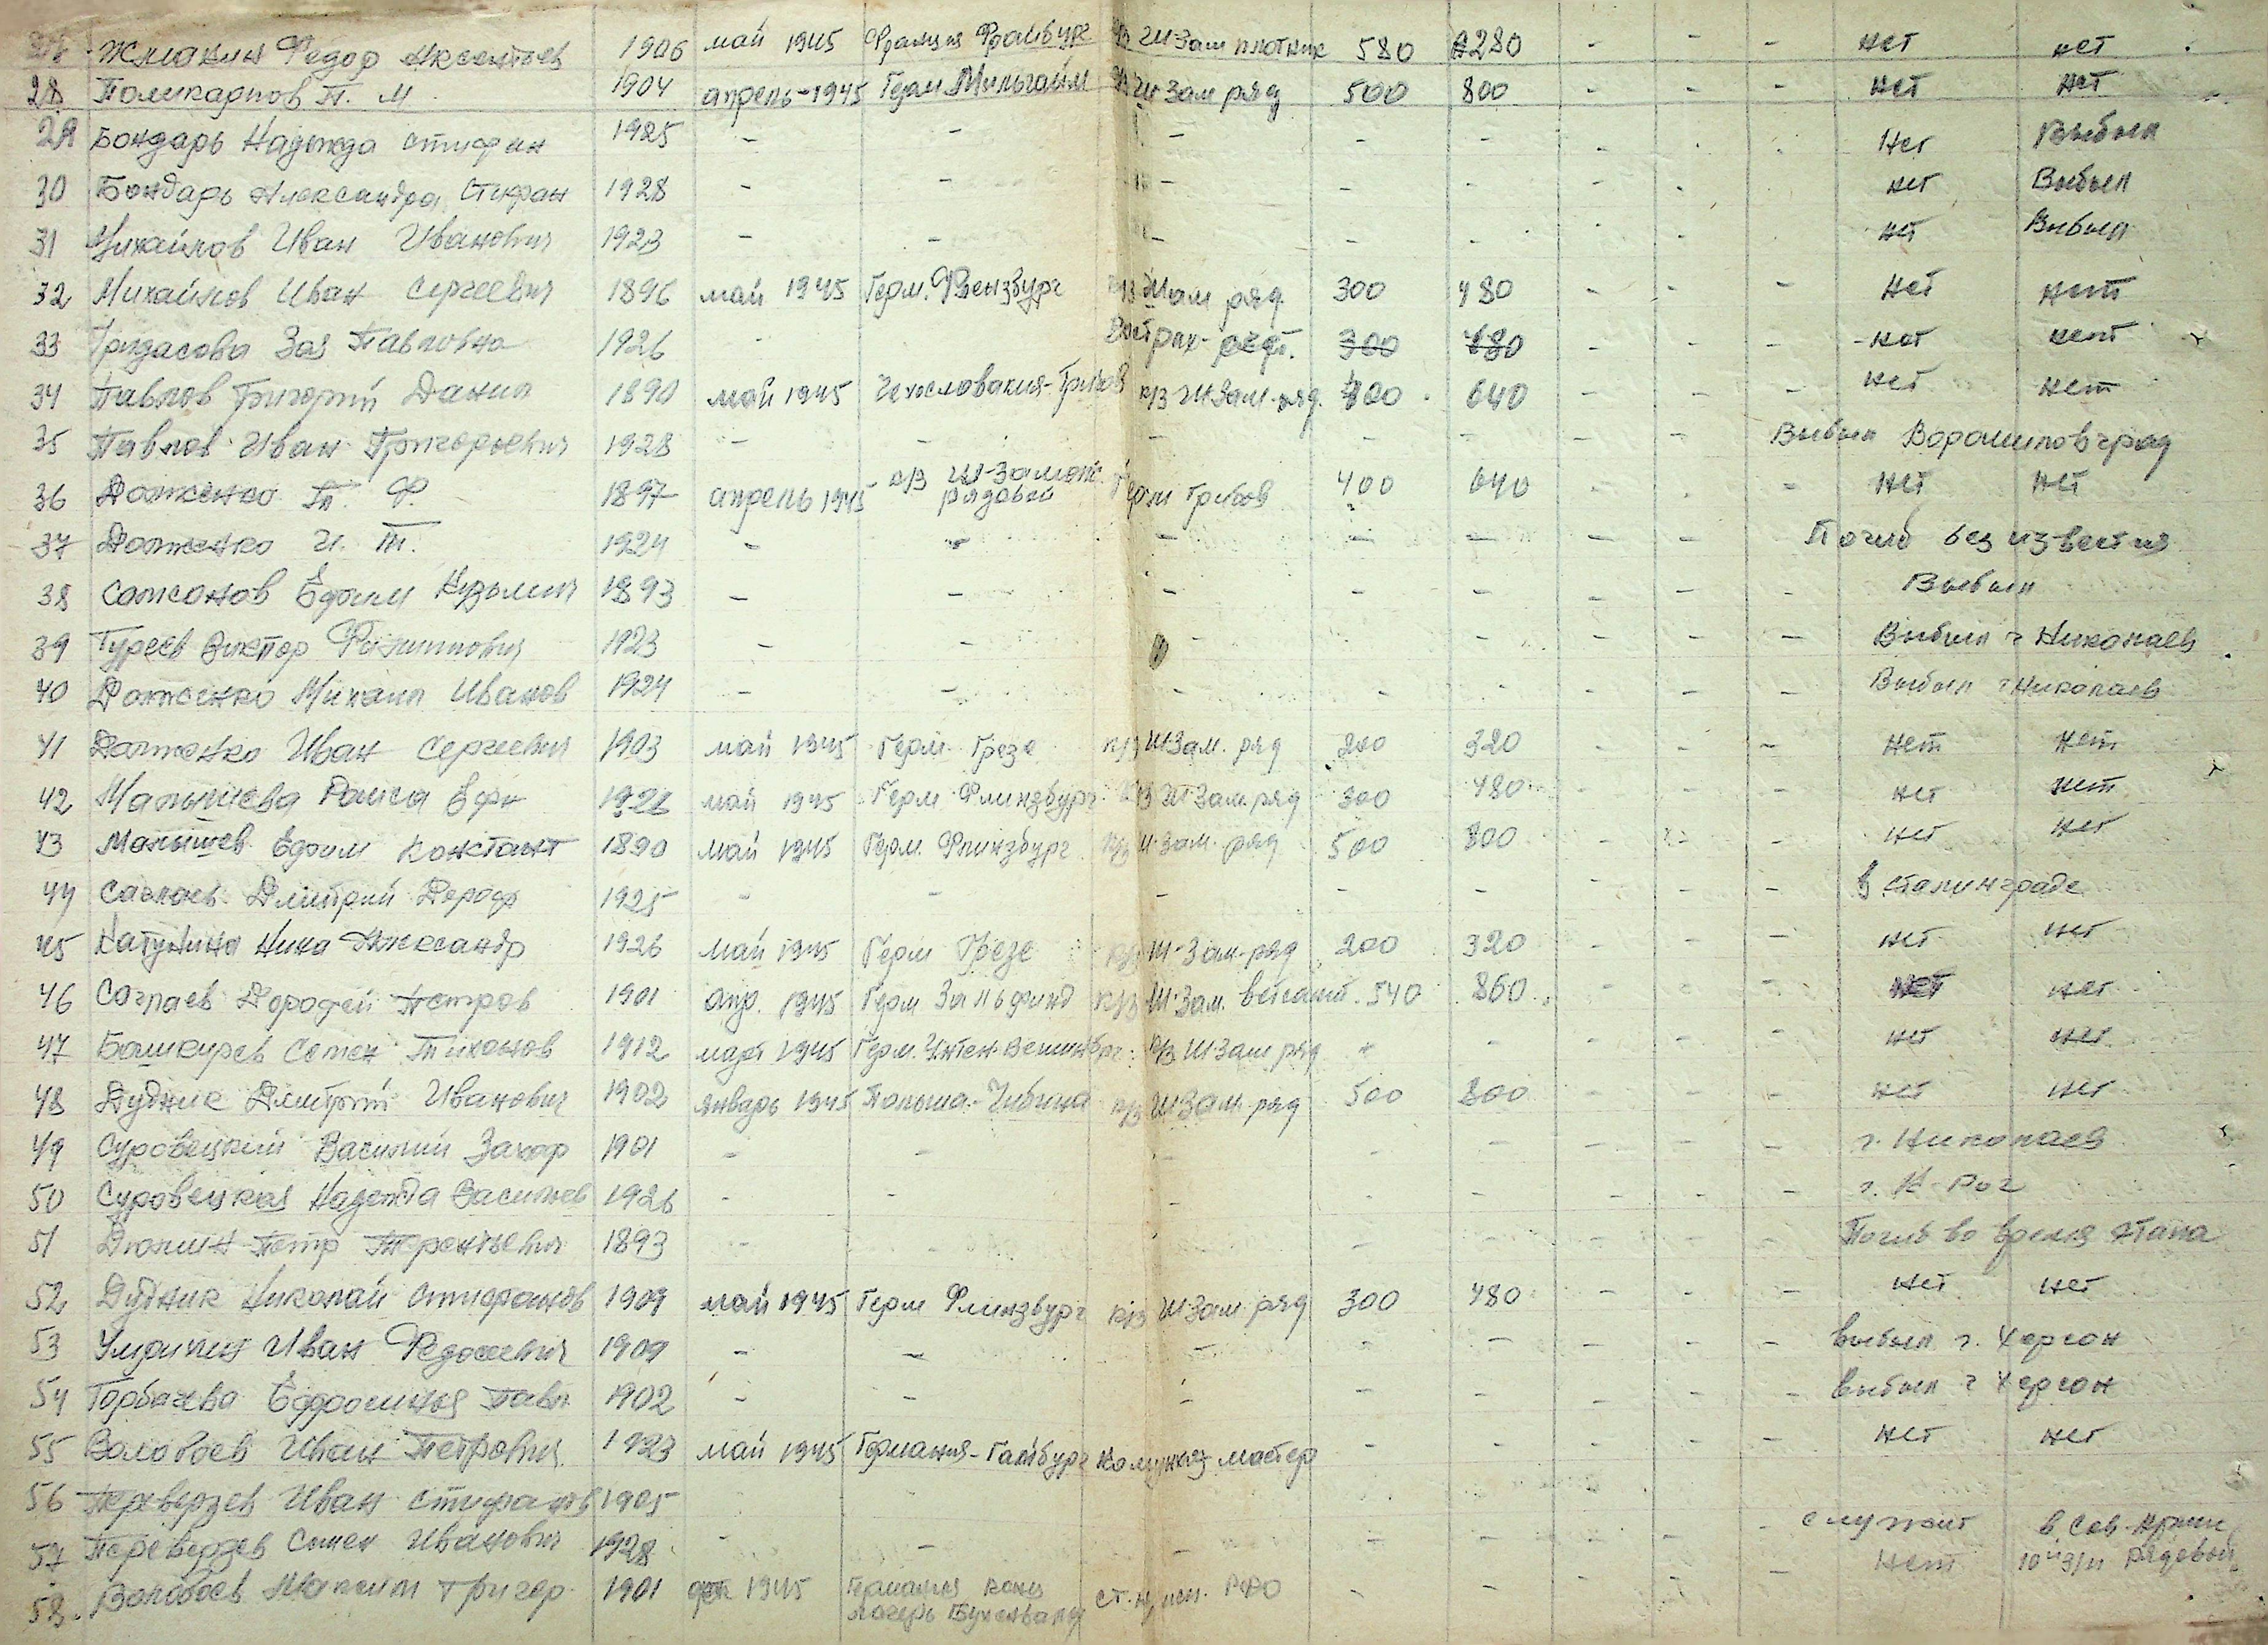 Жмакин Федор Аксентьев 1906 май 1945 Франция к/з Ш Зам плотник 580 280 - - - нет нет
28 Поликарпов П. М. 1904 апрель-1945 Герм. Мильгайм к/з Ш Зам ряд 500 800 - - - нет нет
29 Бондарь Надежда Стифан 1925 - - - - - - - - Нет Выбыл
30 Бондарь Александра Стифан 1928 - - - - - - - нет Выбыл
31 Михайлов Иван Иванович 1923 - - - - - - - - нет Выбыл
32 Михайлов Иван Сергеевич 1896 май 1945 Герм. к/з Ш Зам ряд 300 480 - - - нет нет
33 Зоя Павловна 1926 - 300 480 - - - нет нет
34 Павлов Григорий Данил 1890 май 1945 Чехословакия- к/з Ш Зам. ряд. 400 640 - - - нет нет
35 Павлов Иван Григорьевич 1928 - - - - - - - Выбыл Ворошиловград
36 Долженко Т. Ф. 1897 апрель 1945 к/з Ш-Замет. рядовой Герм Грибов 400 640 - - - нет нет
37 Долженко И. Т. 1924 - - - - - - - - Погиб без известия
38 Самсонов Ефим Кузьмич 1893 - - - - - - - - Выбыл
39 Гуреев Виктор Филиппович 1923 - - - - - - - Выбыл г Николаев
40 Долженко Михаил Иванов 1924 - - - - - - - - Выбыл г Николаев
41 Долженко Иван Сергеевич 1903 май 1945 Герм. Грезе к/з Ш Зам. ряд 200 320 - - - нет нет
42 Малышева Раиса Ефи май 1945 Герм Флинзбург к/з Ш Зам ряд 300 480 - - - нет нет
43 Малышев Ефим Констант 1890 май 1945 Герм. Флинзбург к/з Ш Зам. ряд 500 800 - - - нет нет
44 Саглаев Дмитрий Дороф 1925 - - - - - - - - в Сталинграде
45 Катунина Нина Александр 1926 май 1945 Герм Грезе к/з Ш-Зам. ряд 200 320 - - - нет нет
46 Саглаев Дорофей Петров 1901 апр. 1945 Герм к/з Ш-Зам. 540 860 - - - нет нет
47 Башкирев Семен Тихонов 1912 март 1945 Герм. к/з Ш Зам ряд - - - - - нет нет
48 Дудник Дмитрий Иванович 1902 январь 1945 Польша- к/з Ш Зам ряд 500 800 - - - нет нет
49 Суровецкий Василий Захар 1901 - - - - - - - - г. Николаев
50 Суровецкая Надежда Васильев 1926 - - - - - - - - г. К-Рог
51 Дюлин Петр Терентьевич 1893 - - - - - - - Погиб во время этапа
52 Дудник Николай Стифанов 1909 май 1945 Герм Флинзбург к/з Ш Зам ряд 300 480 - - - нет нет
53 Иван Федосеевич 1909 - - - - - - - - выбыл г. Херсон
54 Горбачева Ефросинья Павл 1902 - - - - - - - - выбыл г Херсон
55 Воловоев Иван Петрович 1923 май 1945 Германия-Гамбург мастер - - - - - нет нет
56 Переверзев Иван Стифанов 1905 служит в Сов-Армии
57 Переверзев Семен Иванович 1928 - - - - - - - - нет рядовой
58. Воловоев Максим Григор 1901 1945 Германия конц лагерь Бухенвальд - - - - -